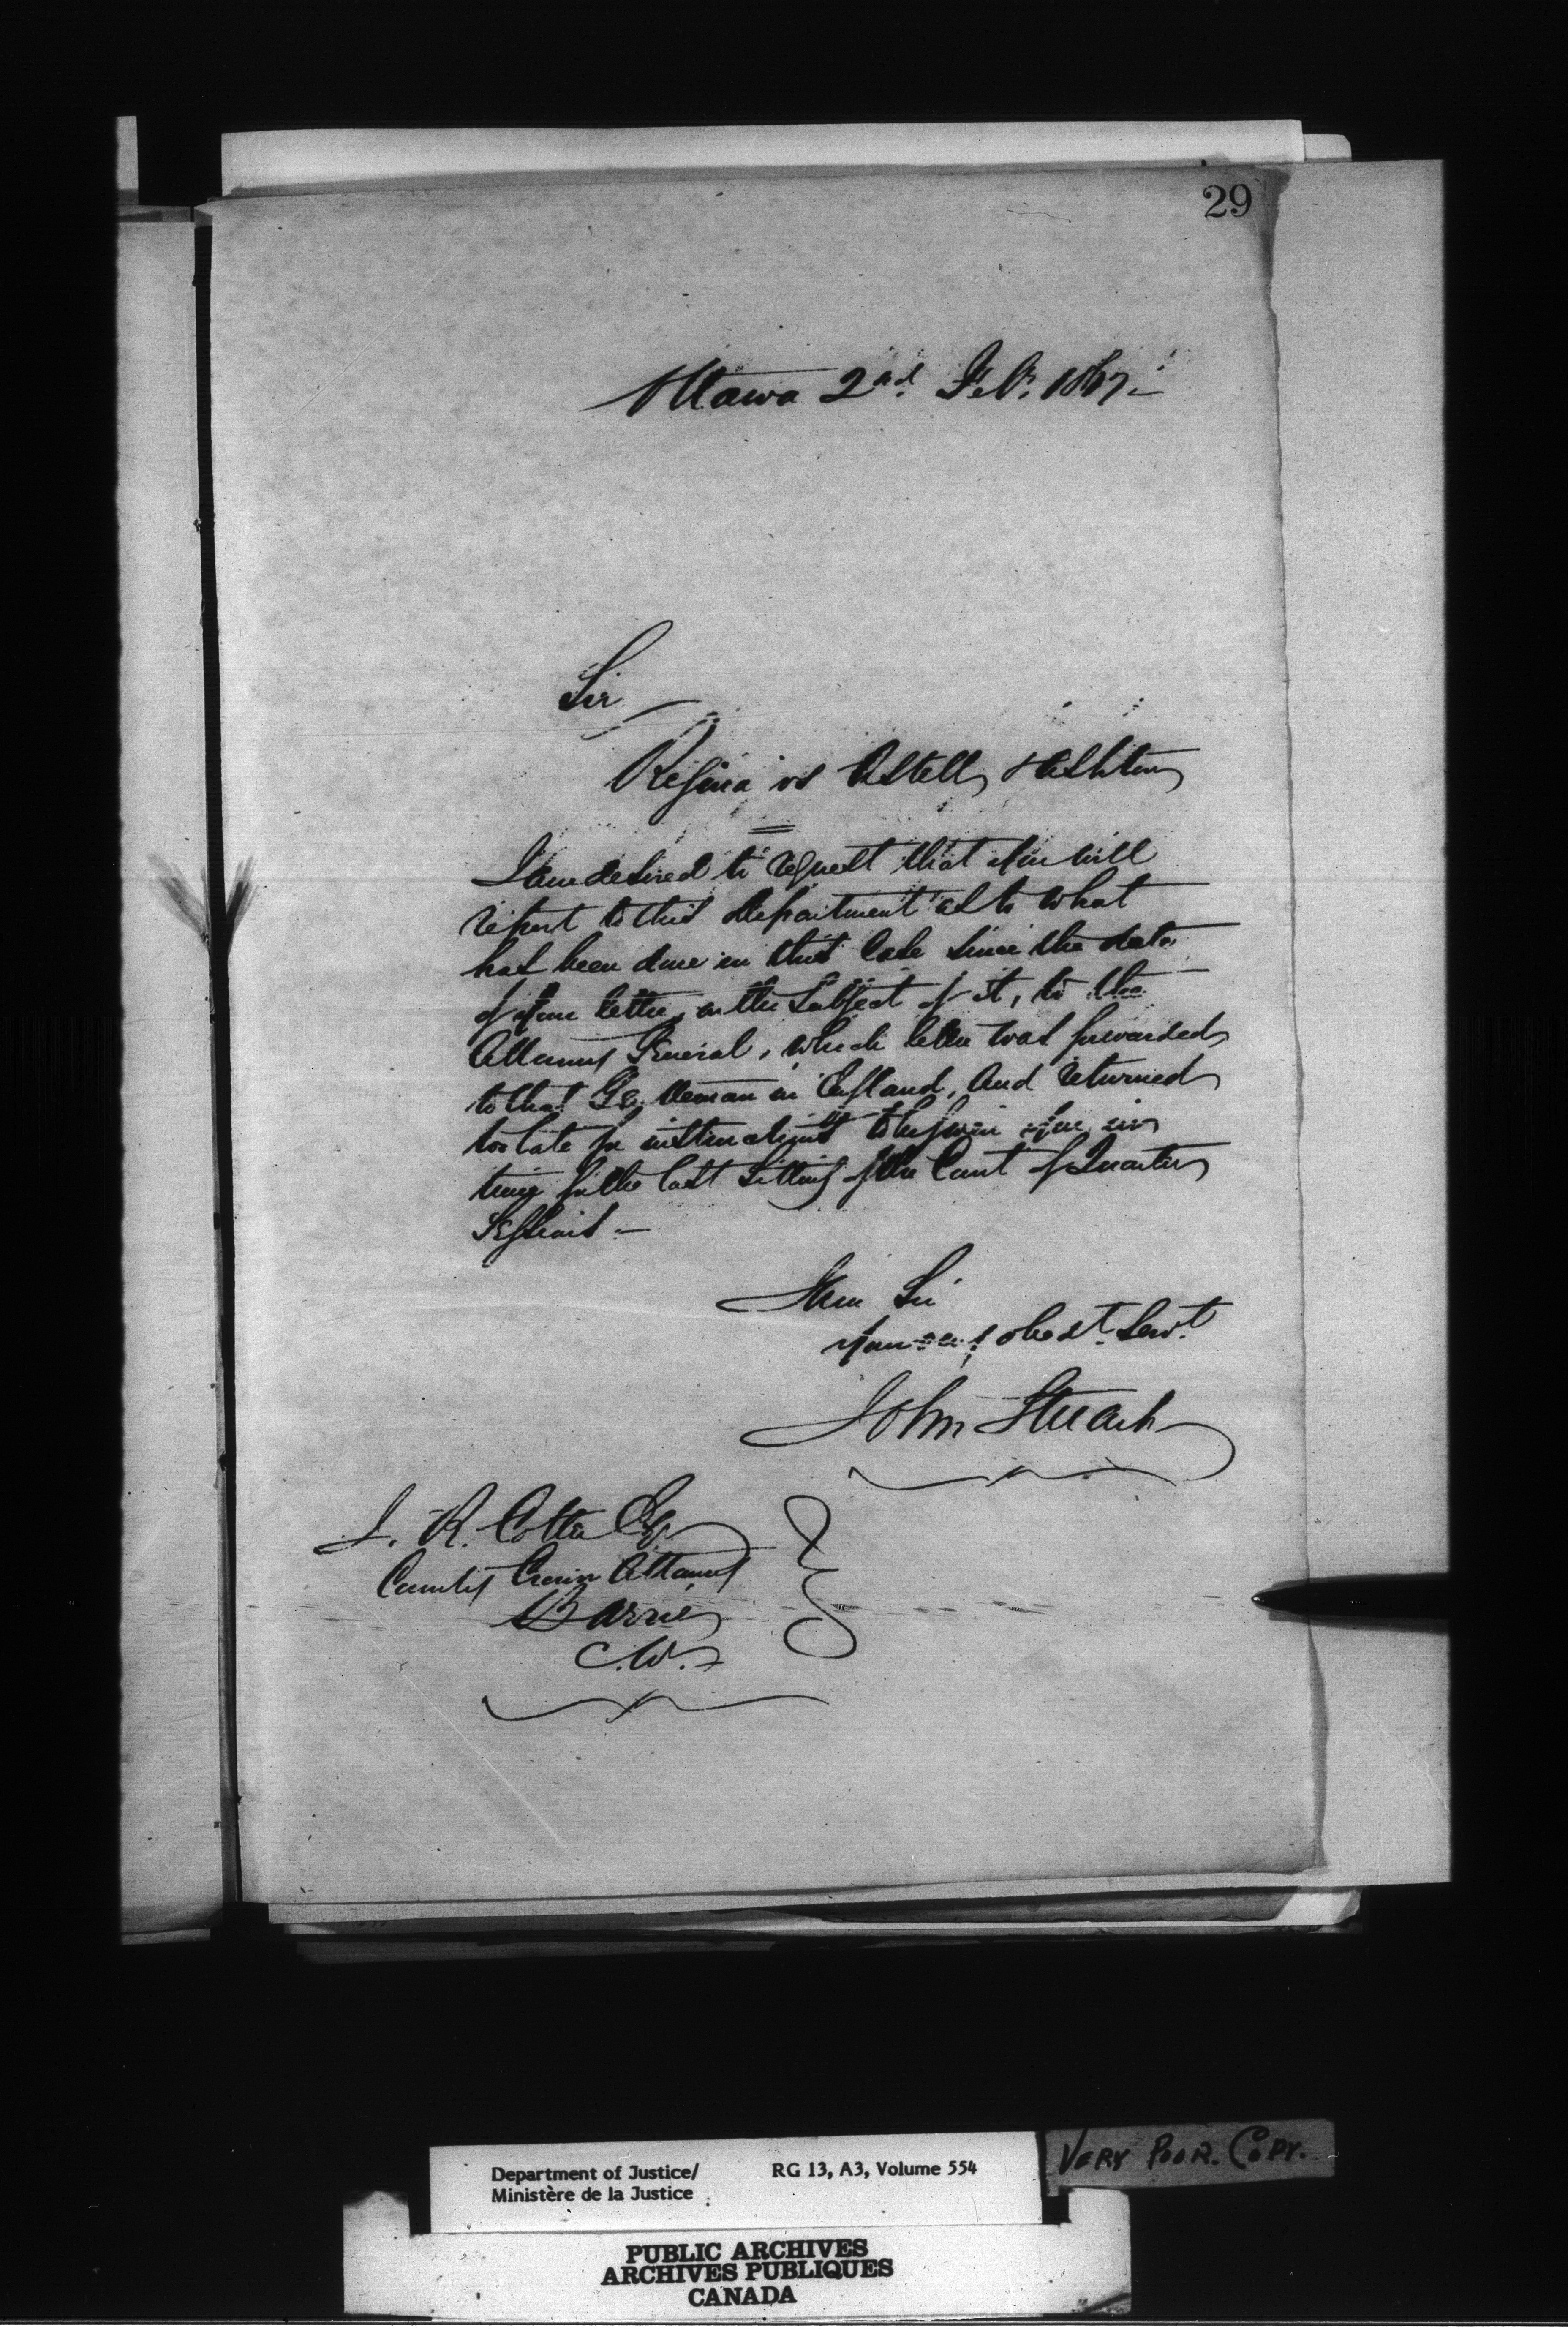 29
Ottawa 2nd. Feb. 1867
Sir
Regina vs Astell & Ashton
I am desired to request that you will
report to this Department as to what
has been done in this case since the date
of your letter, on the subject of it, to the
Attorney General, which letter was forwarded
to that Gentleman in England, and returned
too late for instructions to be given you in
time for the last sitting of the Court of Quarter
Sessions —
I am Sir
Your obedt. Servt.
John Stuart
J. R. Cotter Esq
County Crown Attorney
Barrie
C.W.
Department of Justice/
Ministère de la Justice
RG 13, A3, Volume 554
VERY POOR. COPY.
PUBLIC ARCHIVES
ARCHIVES PUBLIQUES
CANADA